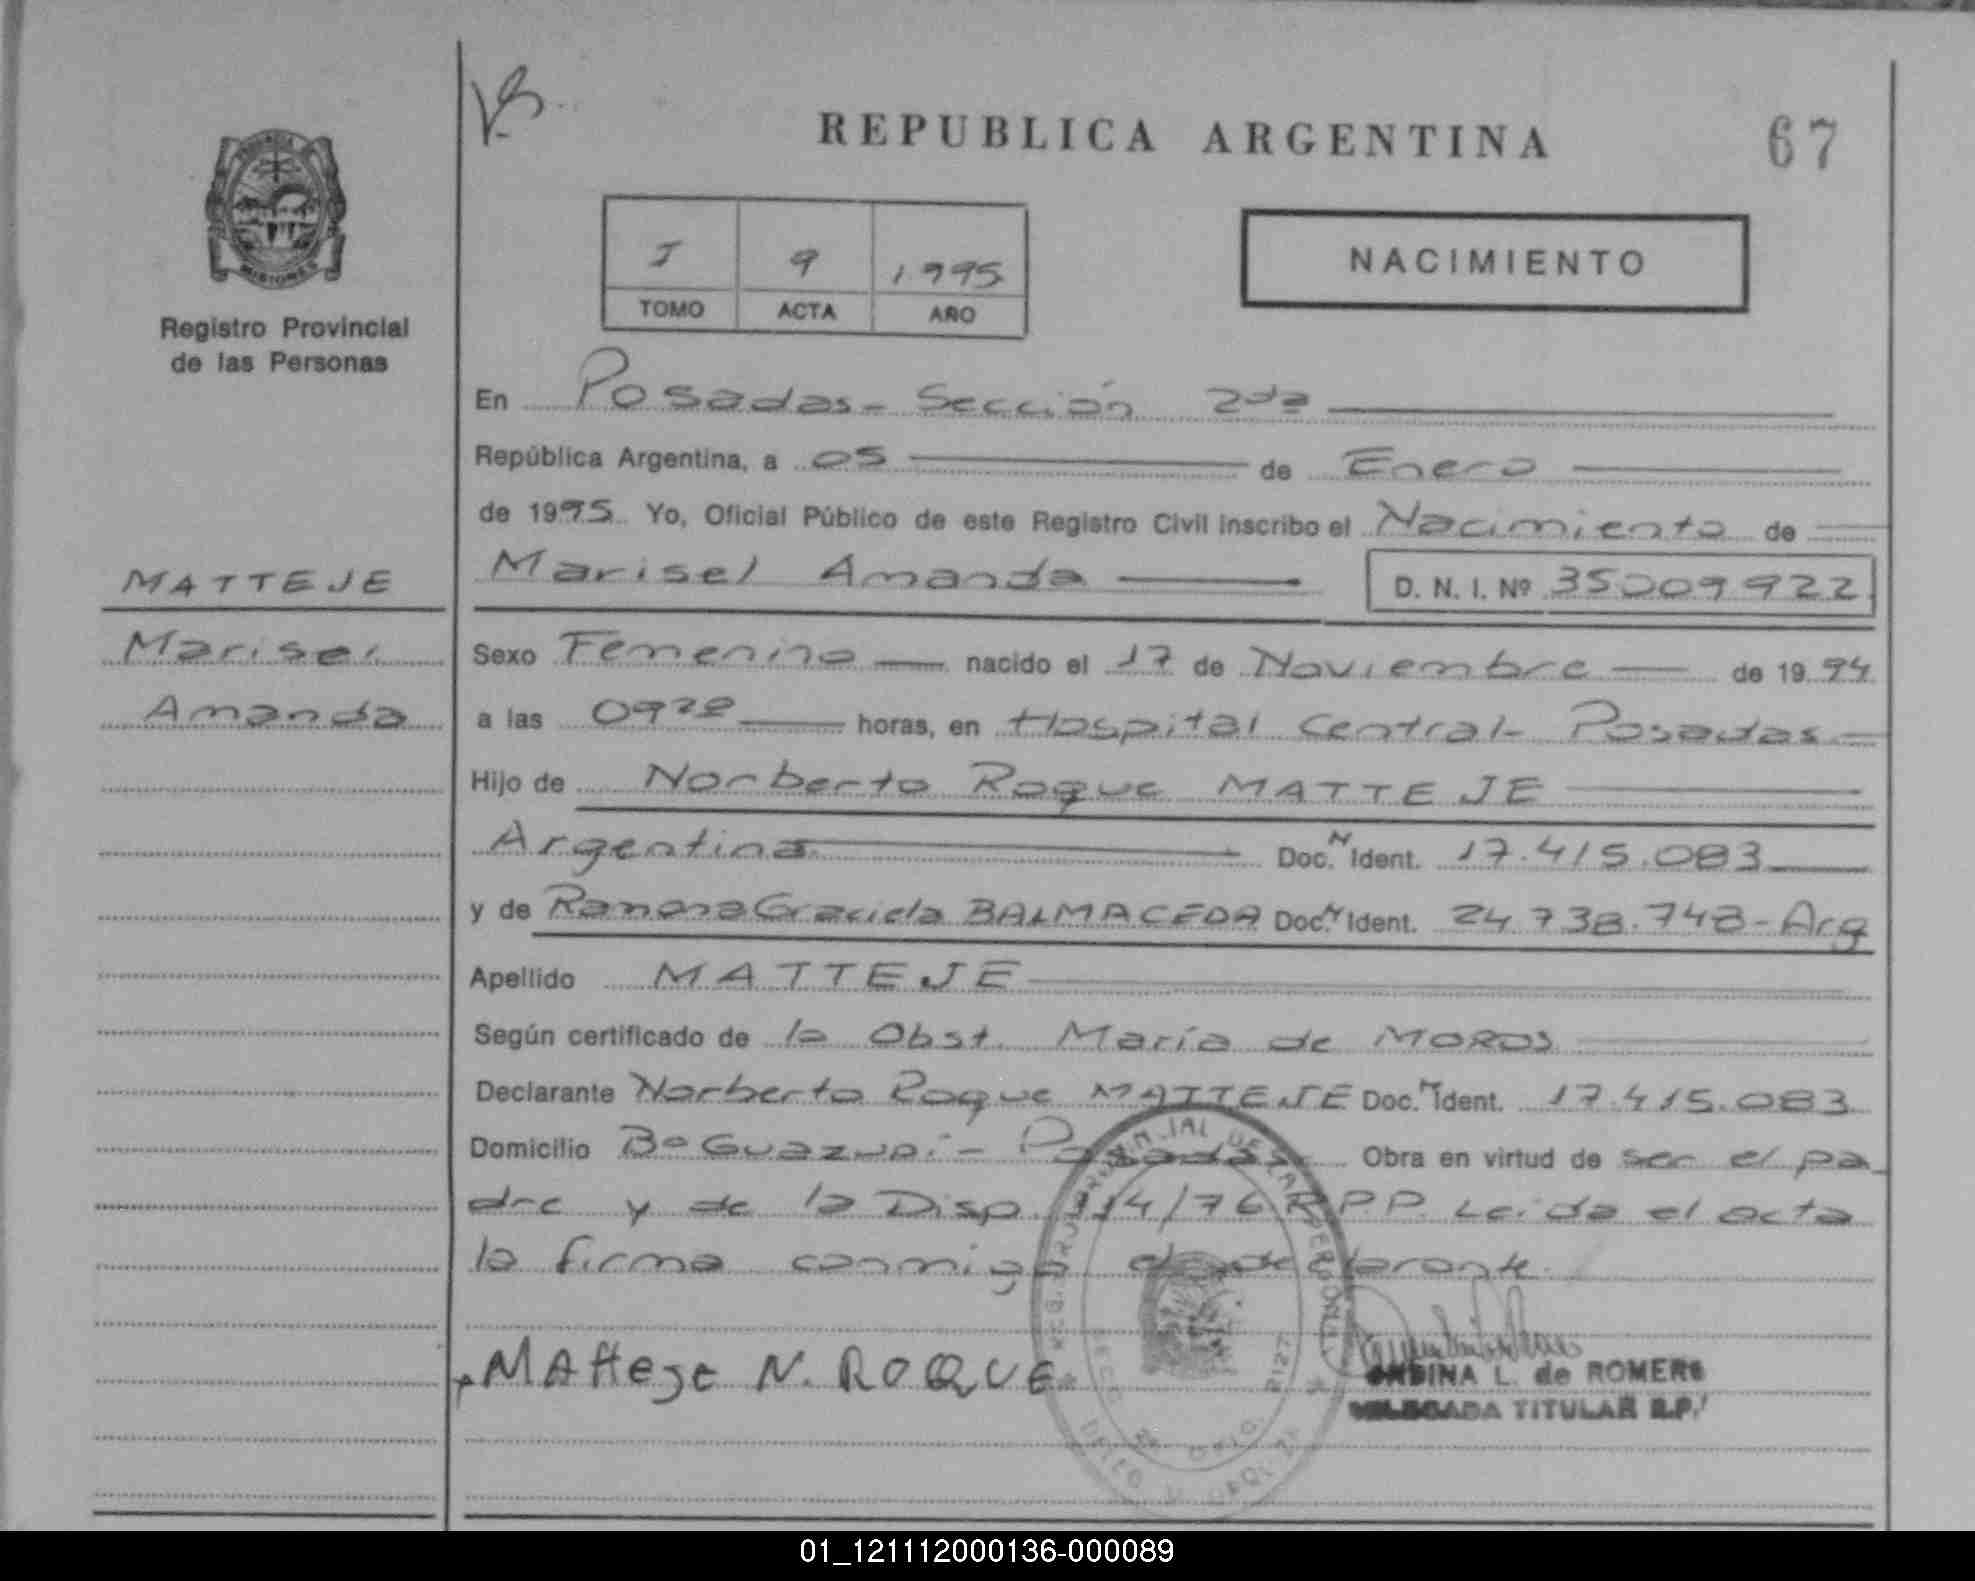 REPUBLICA ARGENTINA
67
MISIONES
Registro Provincial
de las Personas
I 9 1995
TOMO ACTA AÑO
NACIMIENTO
En Posadas - Sección 2da
República Argentina, a 05 de Enero
de 1995 Yo, Oficial Público de este Registro Civil inscribo el Nacimiento de
Marisel Amanda D. N. I. Nº 35009922
MATTEJE
Marisel
Amanda
Sexo Femenino nacido el 17 de Noviembre de 1994
a las horas, en Hospital Central - Posadas -
Hijo de Norberto Roque MATTEJE
Argentina Doc. N Ident. 17.415.083
y de Ramona Graciela BALMACEDA Doc. N Ident. 24.738.748 - Arg
Apellido MATTEJE
Según certificado de la Obst. María de MOROS
Declarante Norberto Roque MATTEJE Doc. N Ident. 17.415.083
Domicilio Bº Guazupi - Posadas Obra en virtud de ser el pa
dre y de la Disp. 114/76 RPP. Leida el acta
la firma conmigo el declarante.
Matteje N. ROQUE
L. de ROMERO
DELEGADA TITULAR R.P.
01_121112000136-000089